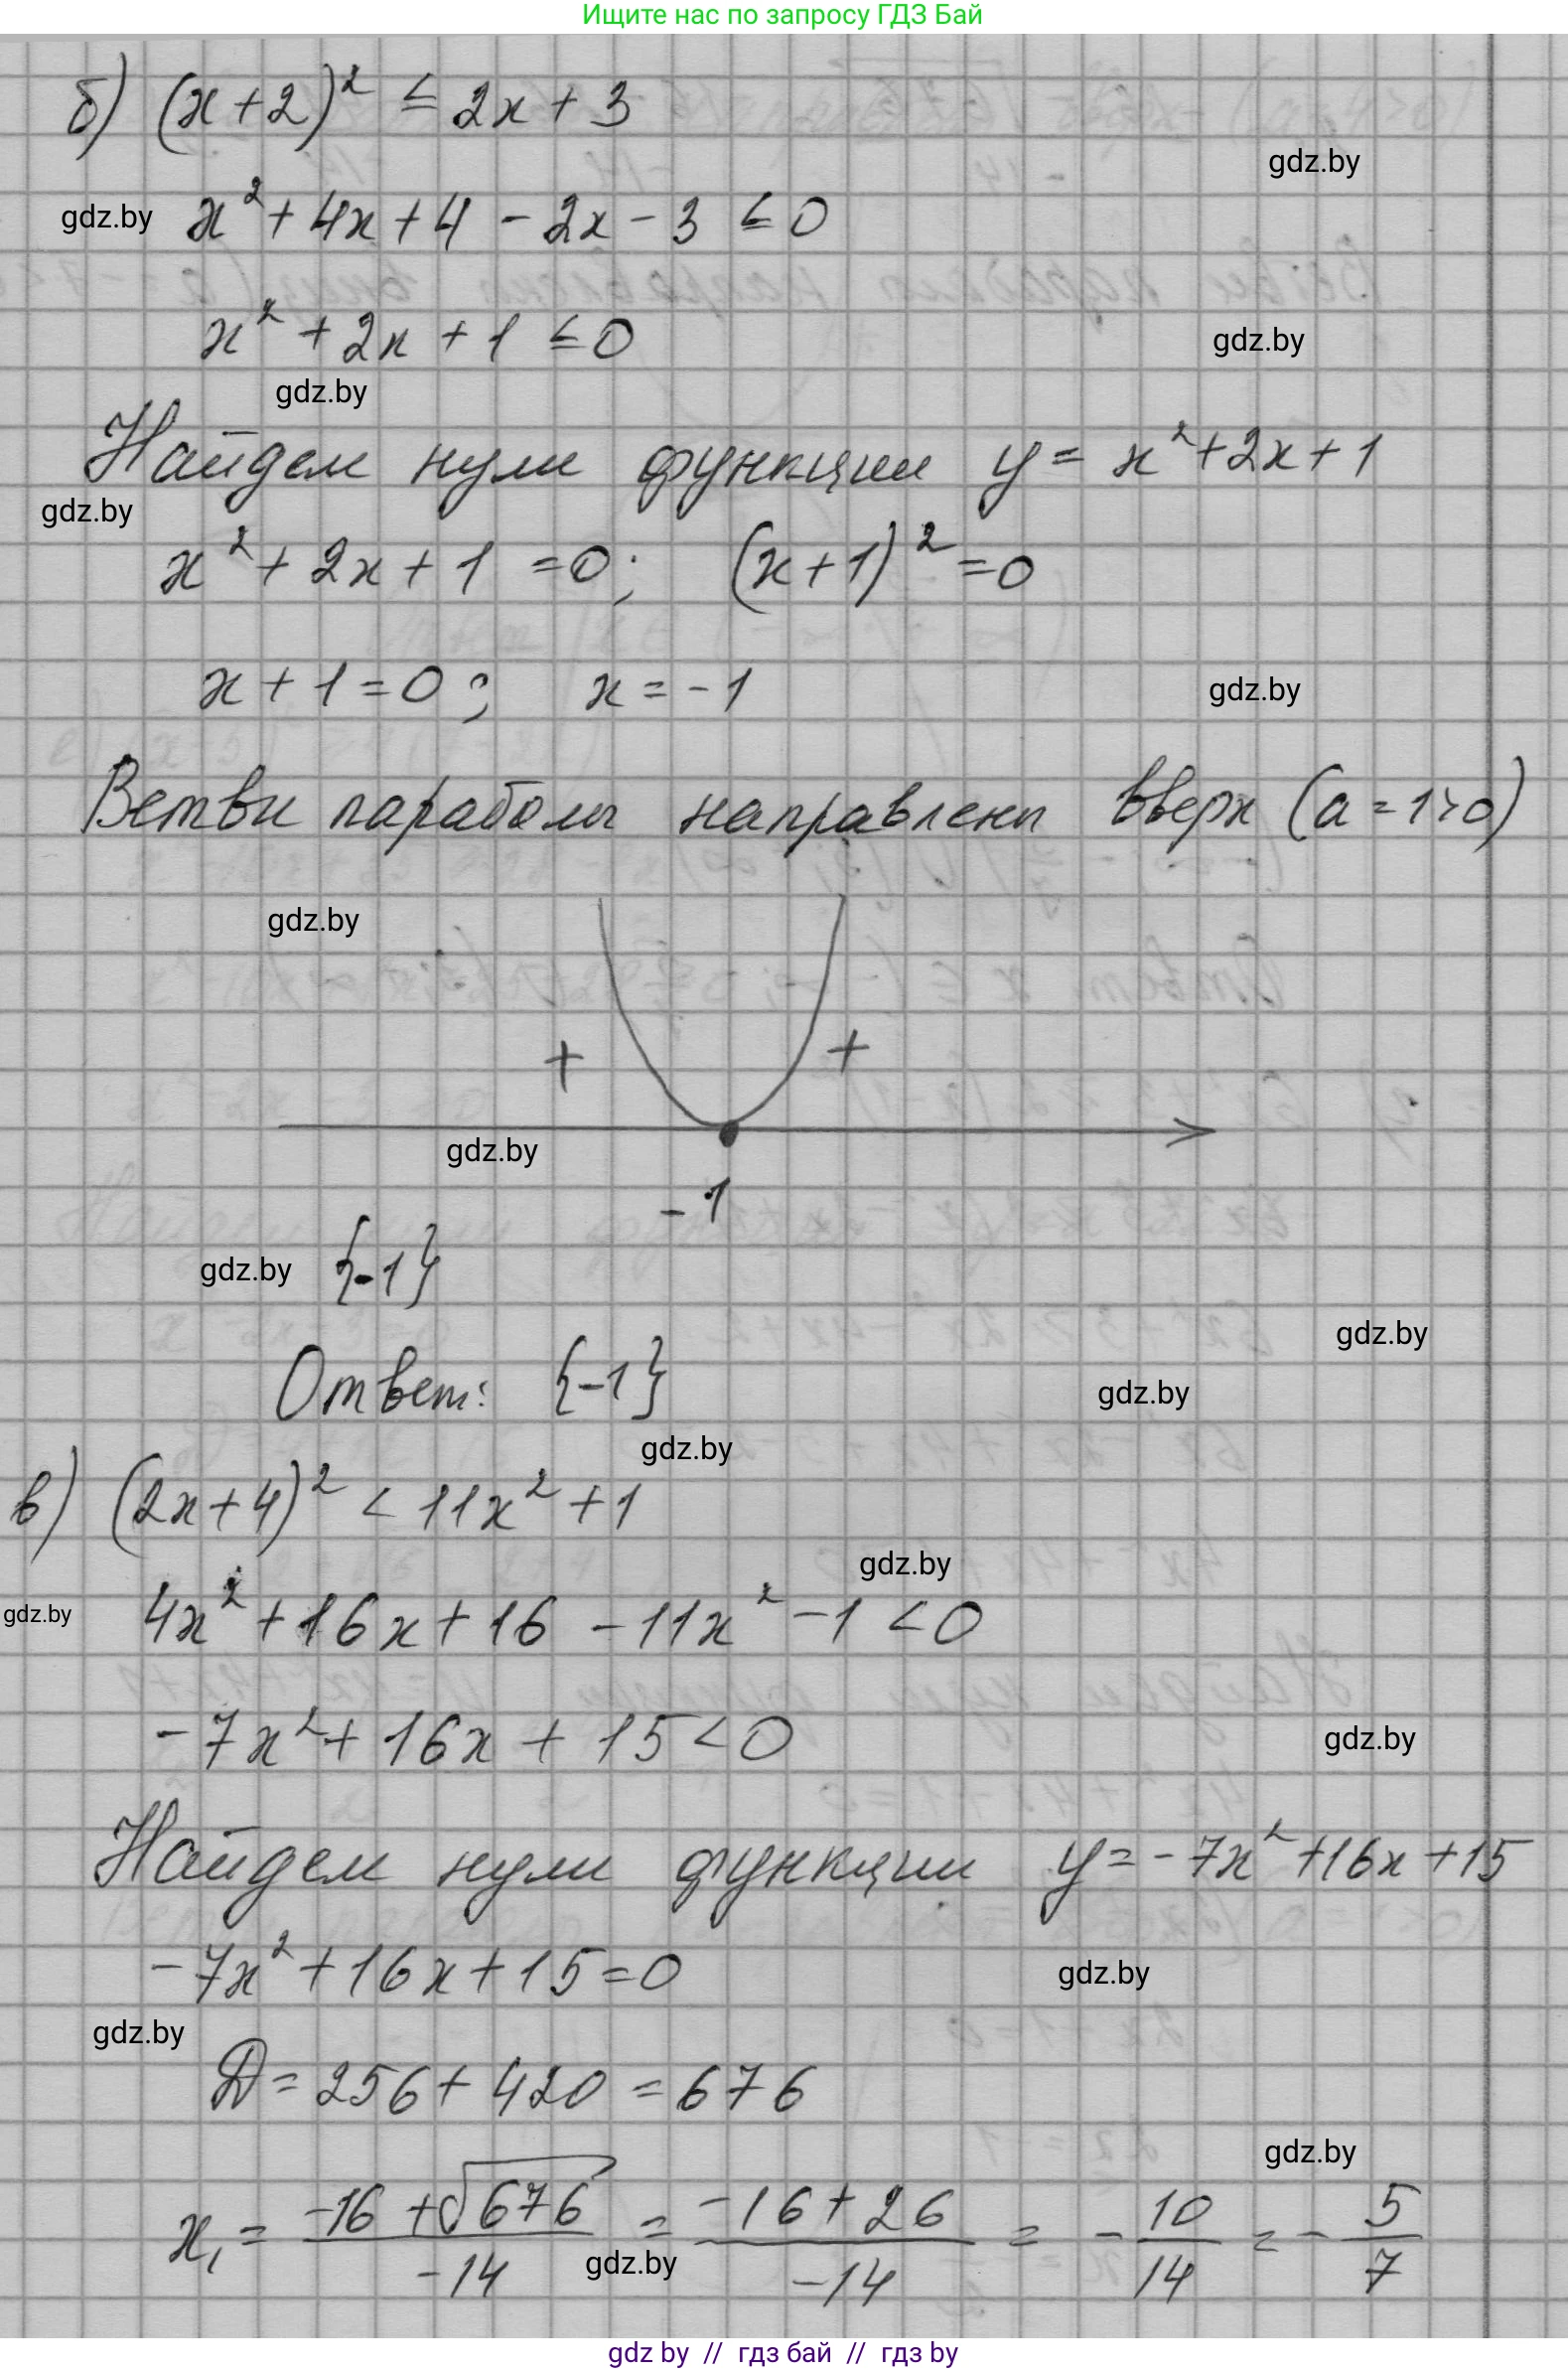 Ищите нас по запросу ГДЗ Бай
б) (x+2)² ≤ 2x + 3
gdz.by
gdz.by x² + 4x + 4 - 2x - 3 ≤ 0
x² + 2x + 1 ≤ 0 gdz.by
gdz.by
Найдем нули функции y = x² + 2x + 1
gdz.by
x² + 2x + 1 = 0; (x+1)² = 0
x + 1 = 0; x = -1 gdz.by
Ветви параболы направлены вверх (a = 1 > 0)
gdz.by
+ +
gdz.by
-1
gdz.by {-1}
gdz.by
Ответ: {-1} gdz.by
gdz.by
в) (2x+4)² < 11x² + 1
gdz.by
gdz.by 4x² + 16x + 16 - 11x² - 1 < 0
-7x² + 16x + 15 < 0 gdz.by
Найдем нули функции y = -7x² + 16x + 15
-7x² + 16x + 15 = 0 gdz.by
gdz.by
D = 256 + 420 = 676
gdz.by
x₁ = (-16 + √676)/(-14) = (-16 + 26)/(-14) = - 10/14 = - 5/7
gdz.by
gdz by // гдз бай // гдз by